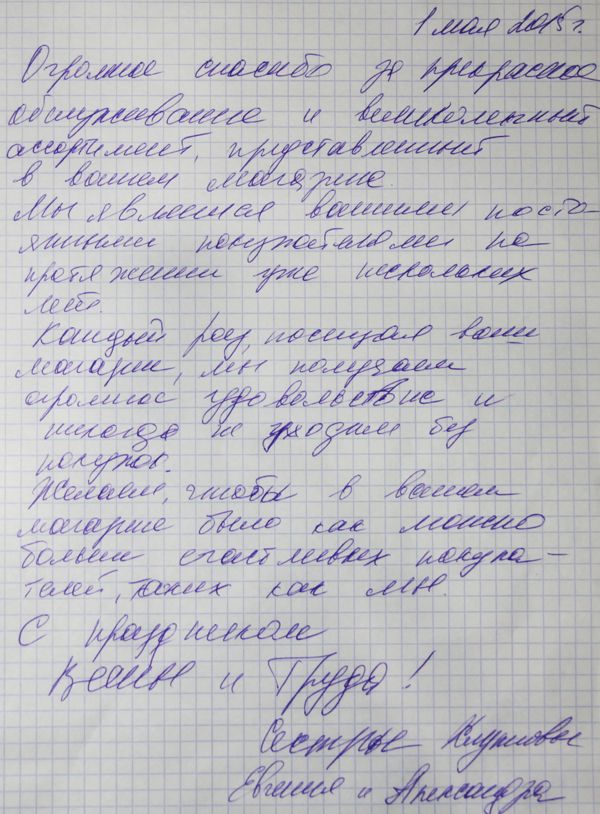 1 мая 2015 г.
Огромное спасибо за прекрасное
обслуживание и великолепный
ассортимент, представленный
в вашем магазине.
Мы являемся вашими посто-
янными покупателями на
протяжении уже нескольких
лет.
Каждый раз, посещая ваш
магазин, мы получаем
огромное удовольствие и
никогда не уходим без
покупок.
Желаем, чтобы в вашем
магазине было как можно
больше счастливых покупа-
телей, таких как мы.
С праздником
Весны и Труда!
Сестры
Евгения и Александра